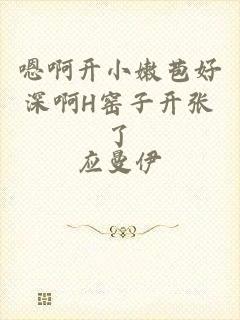 嗯啊开小嫩苞好
深啊H窑子开张
了
应曼伊